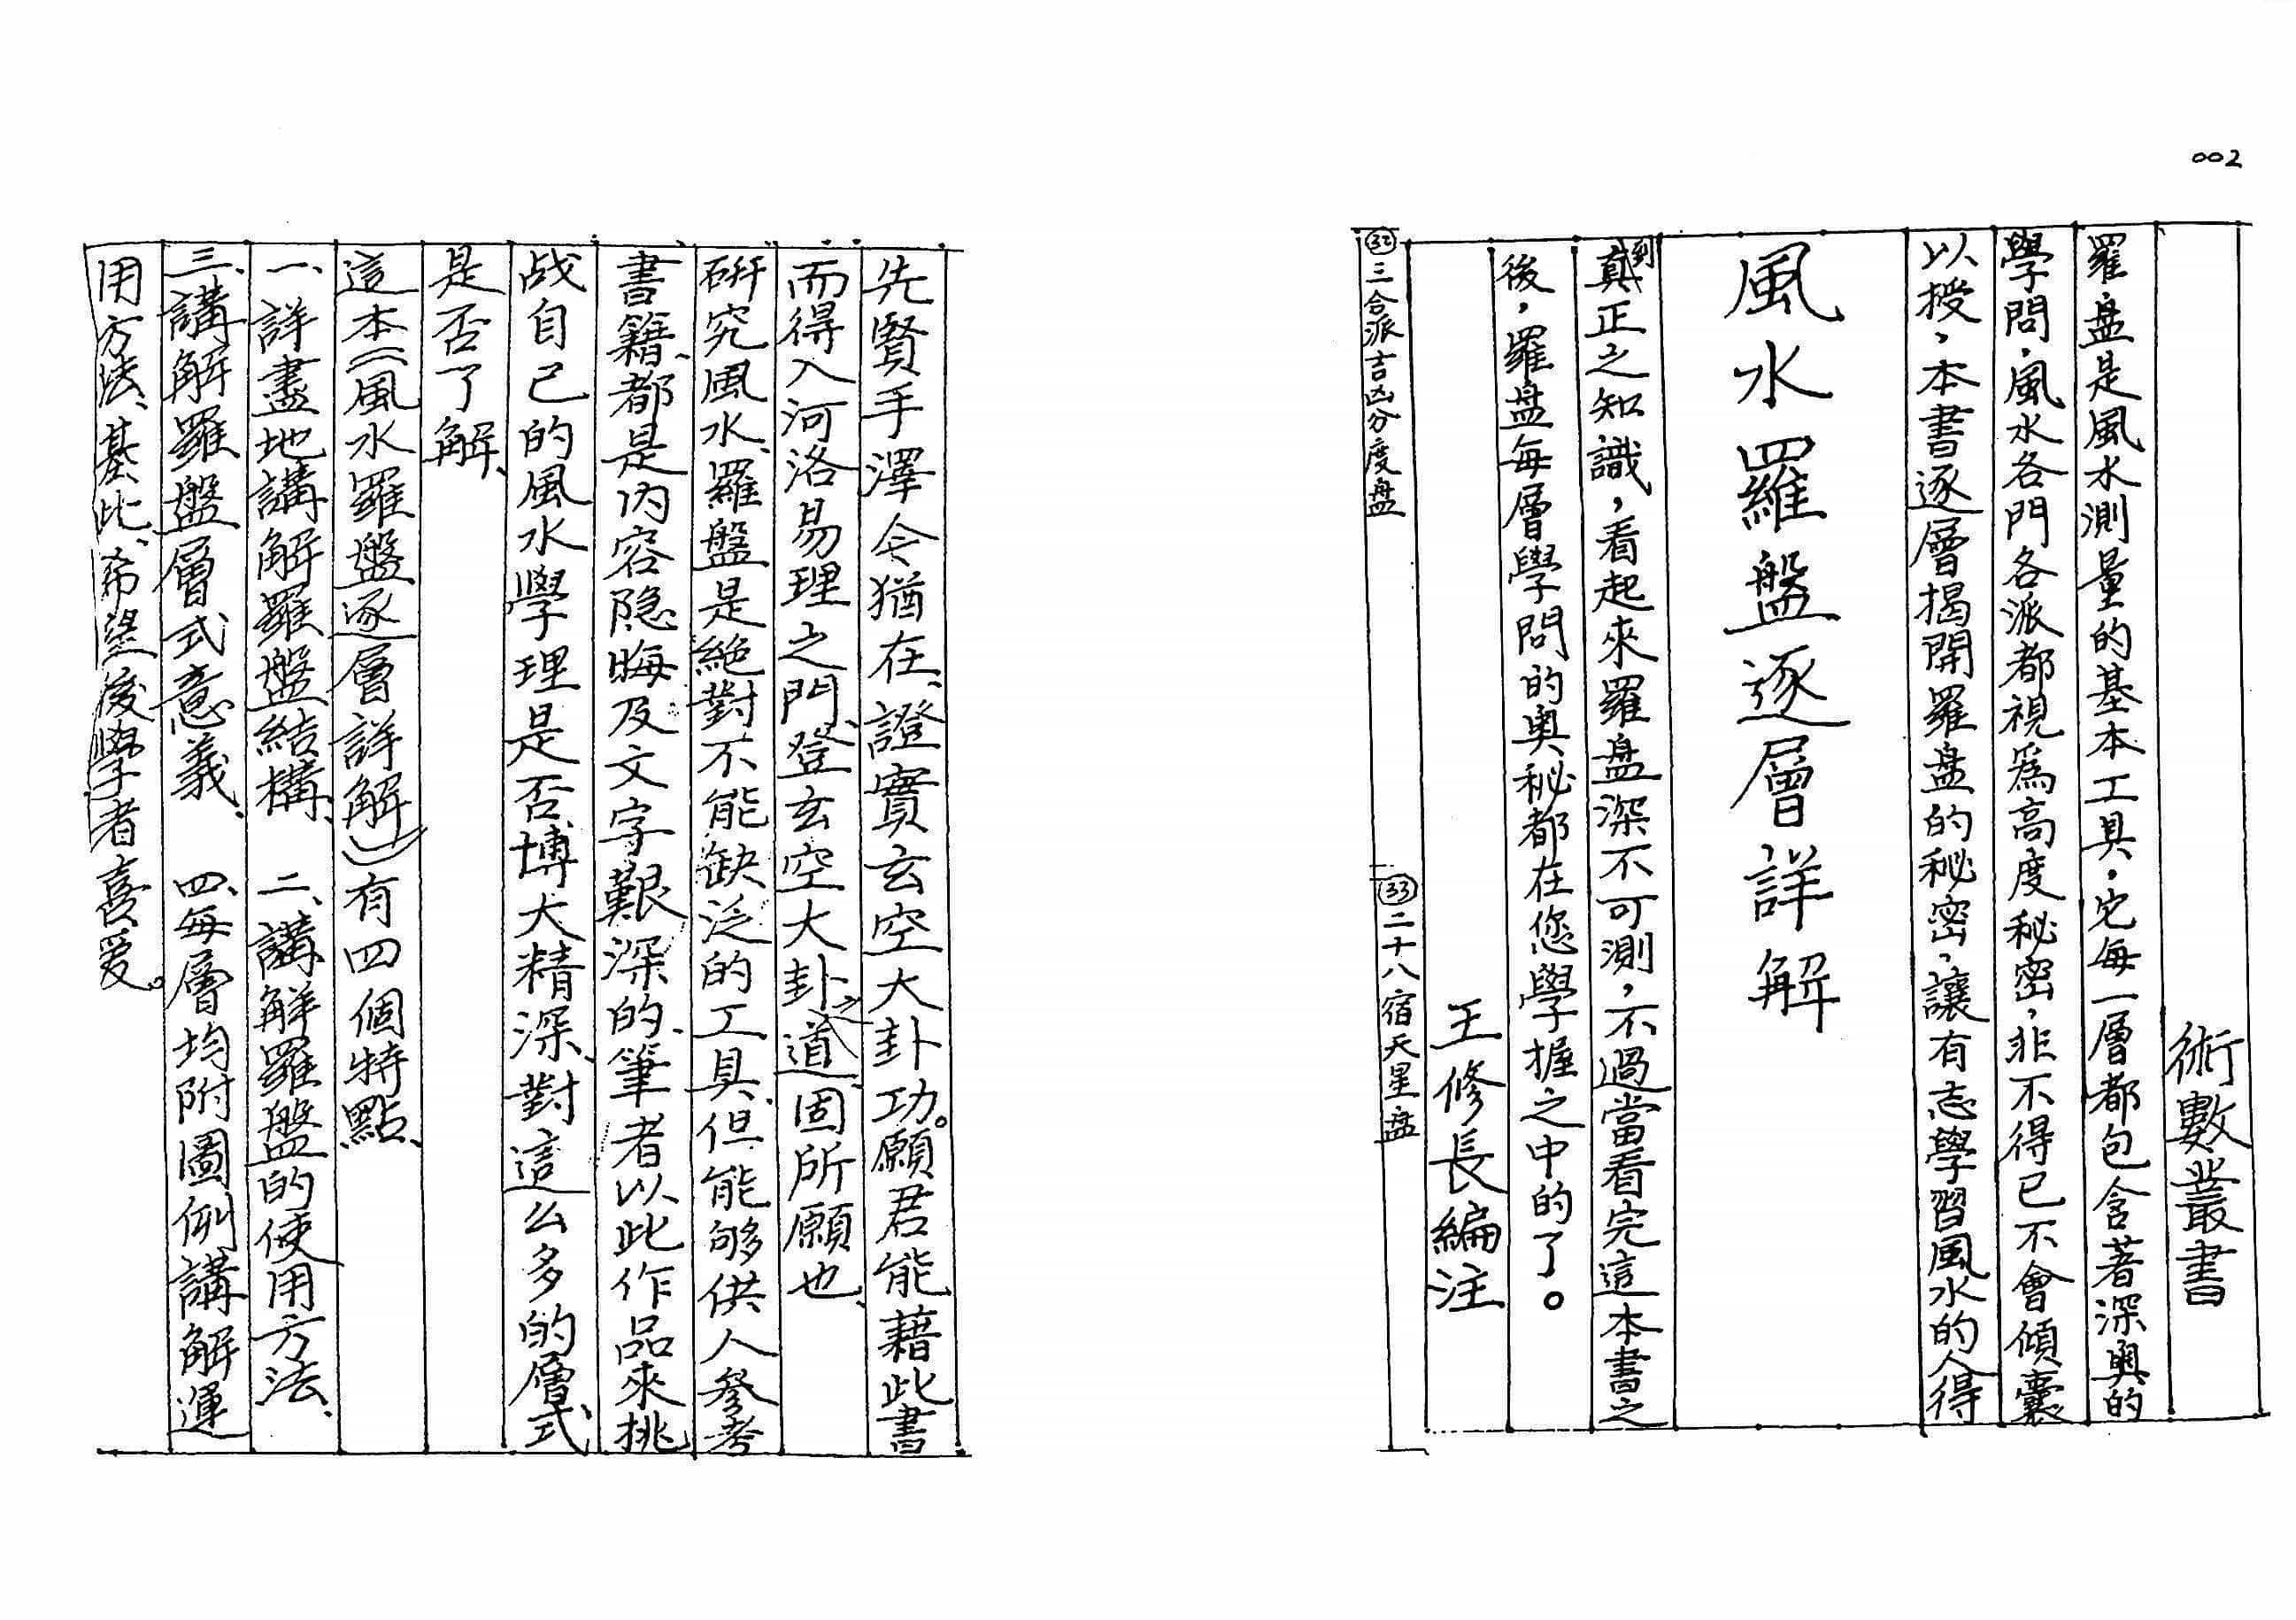 002
術數叢書
羅盘是風水測量的基本工具，它每一層都包含著深奥的
學問，風水各門各派都視爲高度秘密，非不得已不會傾囊
以授，本書逐層揭開羅盘的秘密，讓有志學習風水的人得
風水羅盤逐層詳解
到真正之知識，看起來羅盘深不可測，不過當看完這本書之
後，羅盘每層學問的奥秘都在您學握之中的了。
王修長編注
㉜三合派吉凶分度盘
㉝二十八宿天星盘
先賢手澤今猶在、證實玄空大卦功。願君能藉此書
而得入河洛易理之門、登玄空大卦之道、固所願也、
研究風水、羅盤是絕對不能缺泛的工具、但能够供人參考
書籍、都是内容隐晦及文字艱深的、筆者以此作品來挑
战自己的風水學理是否博大精深、對這么多的層式、
是否了解、
這本《風水羅盤逐層詳解》有四個特點、
一、詳盡地講解羅盤結構、 二、講解羅盤的使用方法、
三、講解羅盤層式意義、 四、每層均附圖例講解運
用方法、基此、希望後學者喜爱。